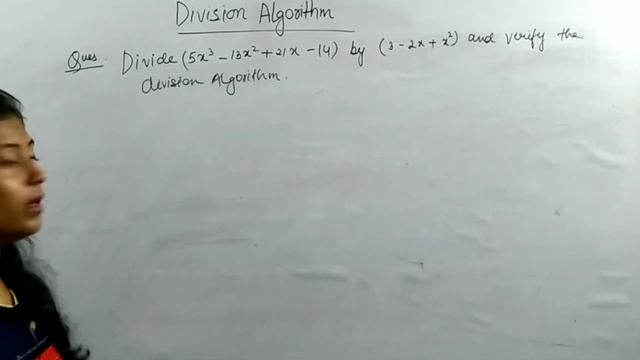 Division Algorithm
Ques. Divide (5x³ - 13x² + 21x - 14) by (3 - 2x + x²) and verify the
division Algorithm.